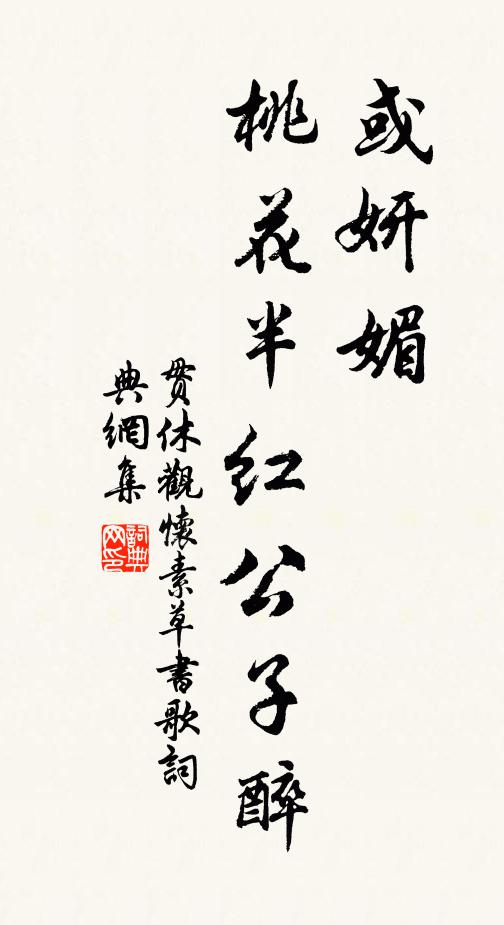 或妍媚
桃花半紅公子醉
貫休觀懷素草書歌詞
典網集
詞典
网印